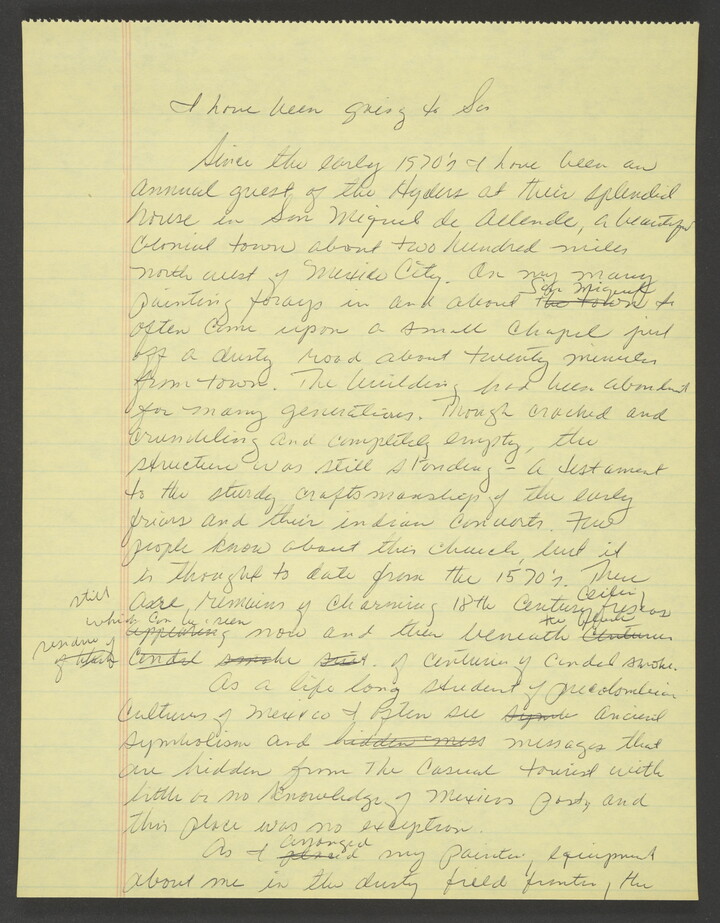 I have been going to San
Since the early 1970's I have been an
annual guest of the Hyders at their splendid
house in San Miguel de Allende, a beautiful
Colonial town about two hundred miles
north west of Mexico City. On my many
San Miguel
painting forays in and about the town I
often come upon a small chapel just
off a dusty road about twenty minutes
from town. The building had been abandond
for many generations. Though cracked and
crumbling and completely empty, the
structure was still standing - a testament
to the sturdy craftsmanship of the early
friars and their indian converts. Few
people know about this church, but it
is thought to date from the 1570's. There
ceiling
still
are remains of charming 18th Century frescos
which can be seen
the
appearing now and then beneath centuries
residue of
candel smoke of centuries of candel smoke.
As a life long student of precolombian
Cultures of Mexico I often see ancient
symbolism and hidden mess messages that
are hidden from the casual tourist with
little or no knowledge of Mexicos past, and
this place was no exception.
arranged
As I placed my painting equipment
about me in the dusty field fronting the